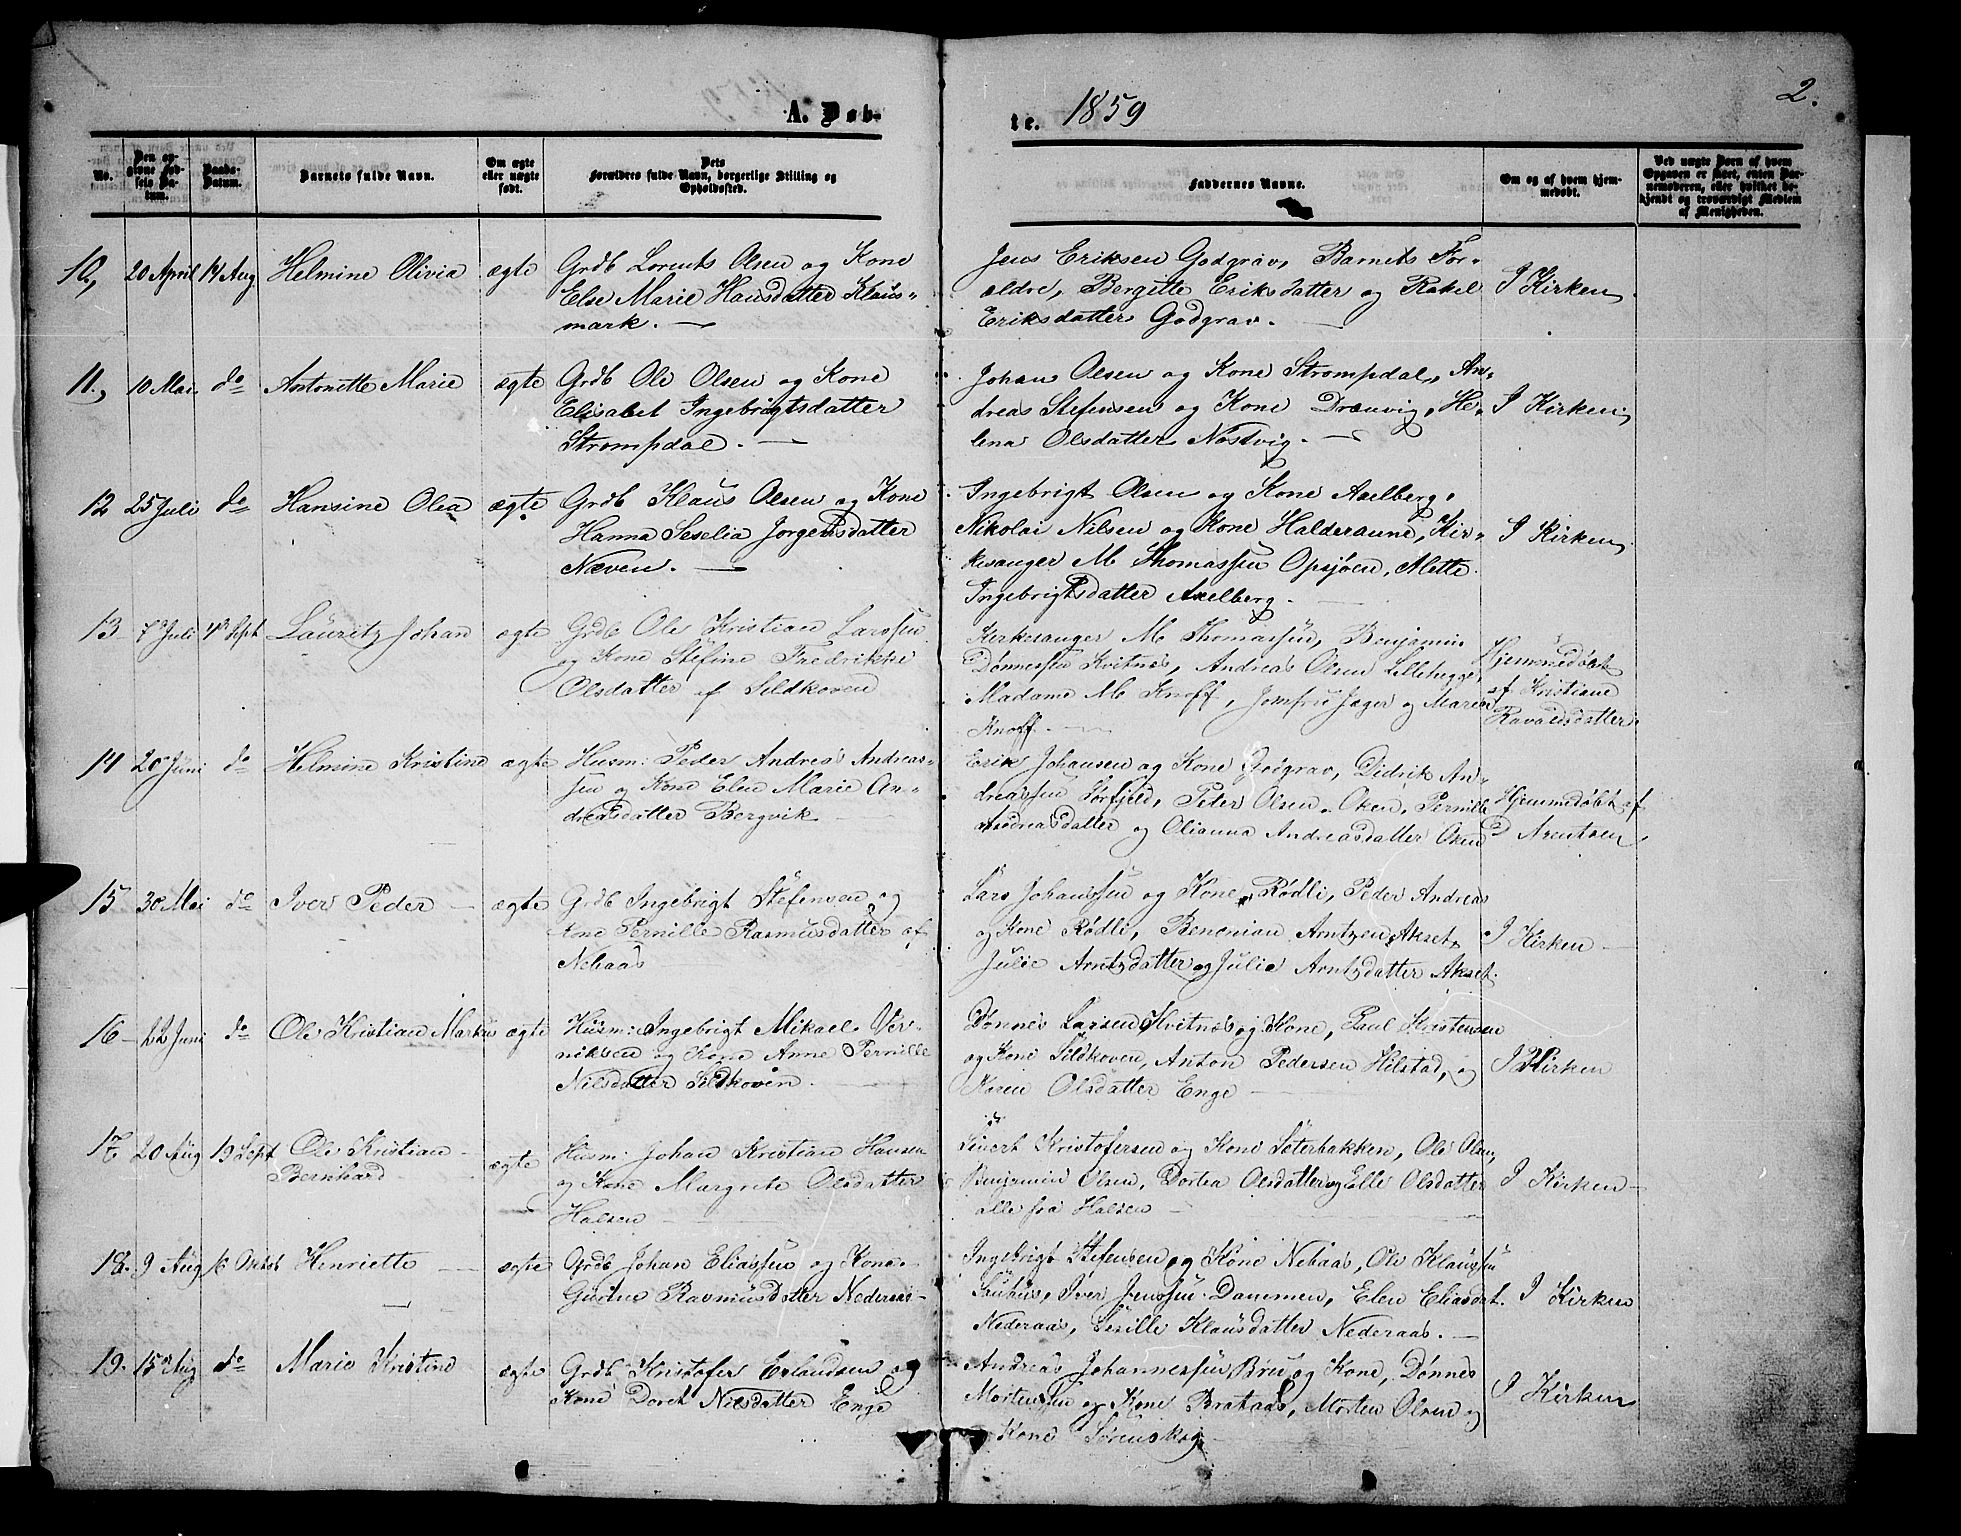 A. Døb-
te. 1859
2.
No.
Den op-
givne Fød-
sels Da-
tum.
Daabs-
Datum.
Barnets fulde Navn.
Om ægte
eller uægte
født.
Dets
Forældres fulde Navn, borgerlige Stilling og
Opholdssted.
Faddernes Navne.
Om og af hvem hjem-
medøbt.
Ved uægte Børn af hvem
Opgaven er skeet, enten Bar-
nemoderen, eller hvilket be-
kjendt og troværdigt Medlem
af Menigheden.
10, 20 April 14 Aug Helmine Olivia ægte
Grdb Lorents Olsen og Kone
Else Marie Hansdatter Klaus-
mark.
Jens Eriksen Godgrav, Barnets For-
ældre, Bergitte Eriksdatter og Rakel
Eriksdatter Godgrav.
I Kirken
11, 10 Mai do Antonette Marie ægte
Grdb Ole Olsen og Kone
Elisabet Ingebrigtsdatter
Strompdal.
Johan Olsen og Kone Strompdal, An-
dreas Stefensen og Kone Drauvig, He-
lena Olsdatter Nostvig.
I Kirken
12 25 Juli do Hansine Olea ægte
Grdb Klaus Olsen og Kone
Hanna Seselia Jorgensdatter
Næven.
Ingebrigt Olsen og Kone Axelberg,
Nikolai Nilsen og Kone Halderaune, Kir-
kesanger M Thomassen Opsjøen, Mette
Ingebrigtsdatter Axelberg.
I Kirken
13 7 Juli 4 Sept Lauritz Johan ægte
Grdb Ole Kristian Larssen
og Kone Stefine Fredrikke
Olsdatter af Sildkoven
Kirkesanger M Thomassen, Benjamin
Dønnessen Kvitnes, Andreas Olsen Lillehegge,
Madame M Knoff, Jomfru Jager og Maren
Knoff
Hjemmedøbt
af Kristiane
Ravaldsdatter
14 20 Juni do Helmine Kristine ægte
Husm: Peder Andreas Andreas-
sen og Kone Elen Marie An-
dreasdatter Bergvik
Erik Johansen og Kone Godgrav, Didrik An-
dreassen Sørfjeld, Peter Olsen Oxen, Pernille
Andreasdatter og Olianna Andreasdatter Oxen
Hjemmedøbt af
D Arentzen
15 30 Mai do Iver Peder ægte
Grdb Ingebrigt Stefensen og
Kone Pernille Rasmusdatter af
Nebaas
Lars Johanssen og Kone Rødli, Peder Andreas
og Kone Rødli, Benonian Arntzen Akset,
Julie Arntzdatter og Julie Arntzdatter Akset.
I Kirken
16 22 Juni do Ole Kristian Markus ægte
Husm: Ingebrigt Mikael Ver-
niksen og Kone Anne Pernille
Nilsdatter Sildkoven
Dønnes Larsen Kvitnes og Kone, Paul Kristensen
og Kone Sildkoven, Anton Pedersen Hilstad, og
Karen Olsdatter Enge
I Kirken
17 20 Aug 19 Sept Ole Kristian
Bernhard
ægte
Husm: Johan Kristian Hansen
og Kone Margrete Olsdatter
Halsen
Sivert Kristofersen og Kone Seterbakken, Ole Olsen,
Benjamin Olsen, Dortea Olsdatter og Elle Olsdatter
alle fra Halsen
I Kirken
18. 9 Aug 16 Oktob Henriette ægte
Grdb Johan Eliassen og Kone
Gurine Rasmusdatter Nederaas
Ingebrigt Stefensen og Kone Nebaas, Ole Klaussen
Sauhus, Iver Jenssen Dammen, Elen Eliasdat.
Nederaas, Sesille Klausdatter Nederaas.
I Kirken
19. 15 Aug do Marie Kristine ægte
Grdb Kristofer Erlandsen og
Kone Doret Nilsdatter Enge
Andreas Johannessen Breu og Kone, Dønnes
Mortenssen og Kone Brataas, Morten Olsen og
Kone Sørenskog
I Kirken